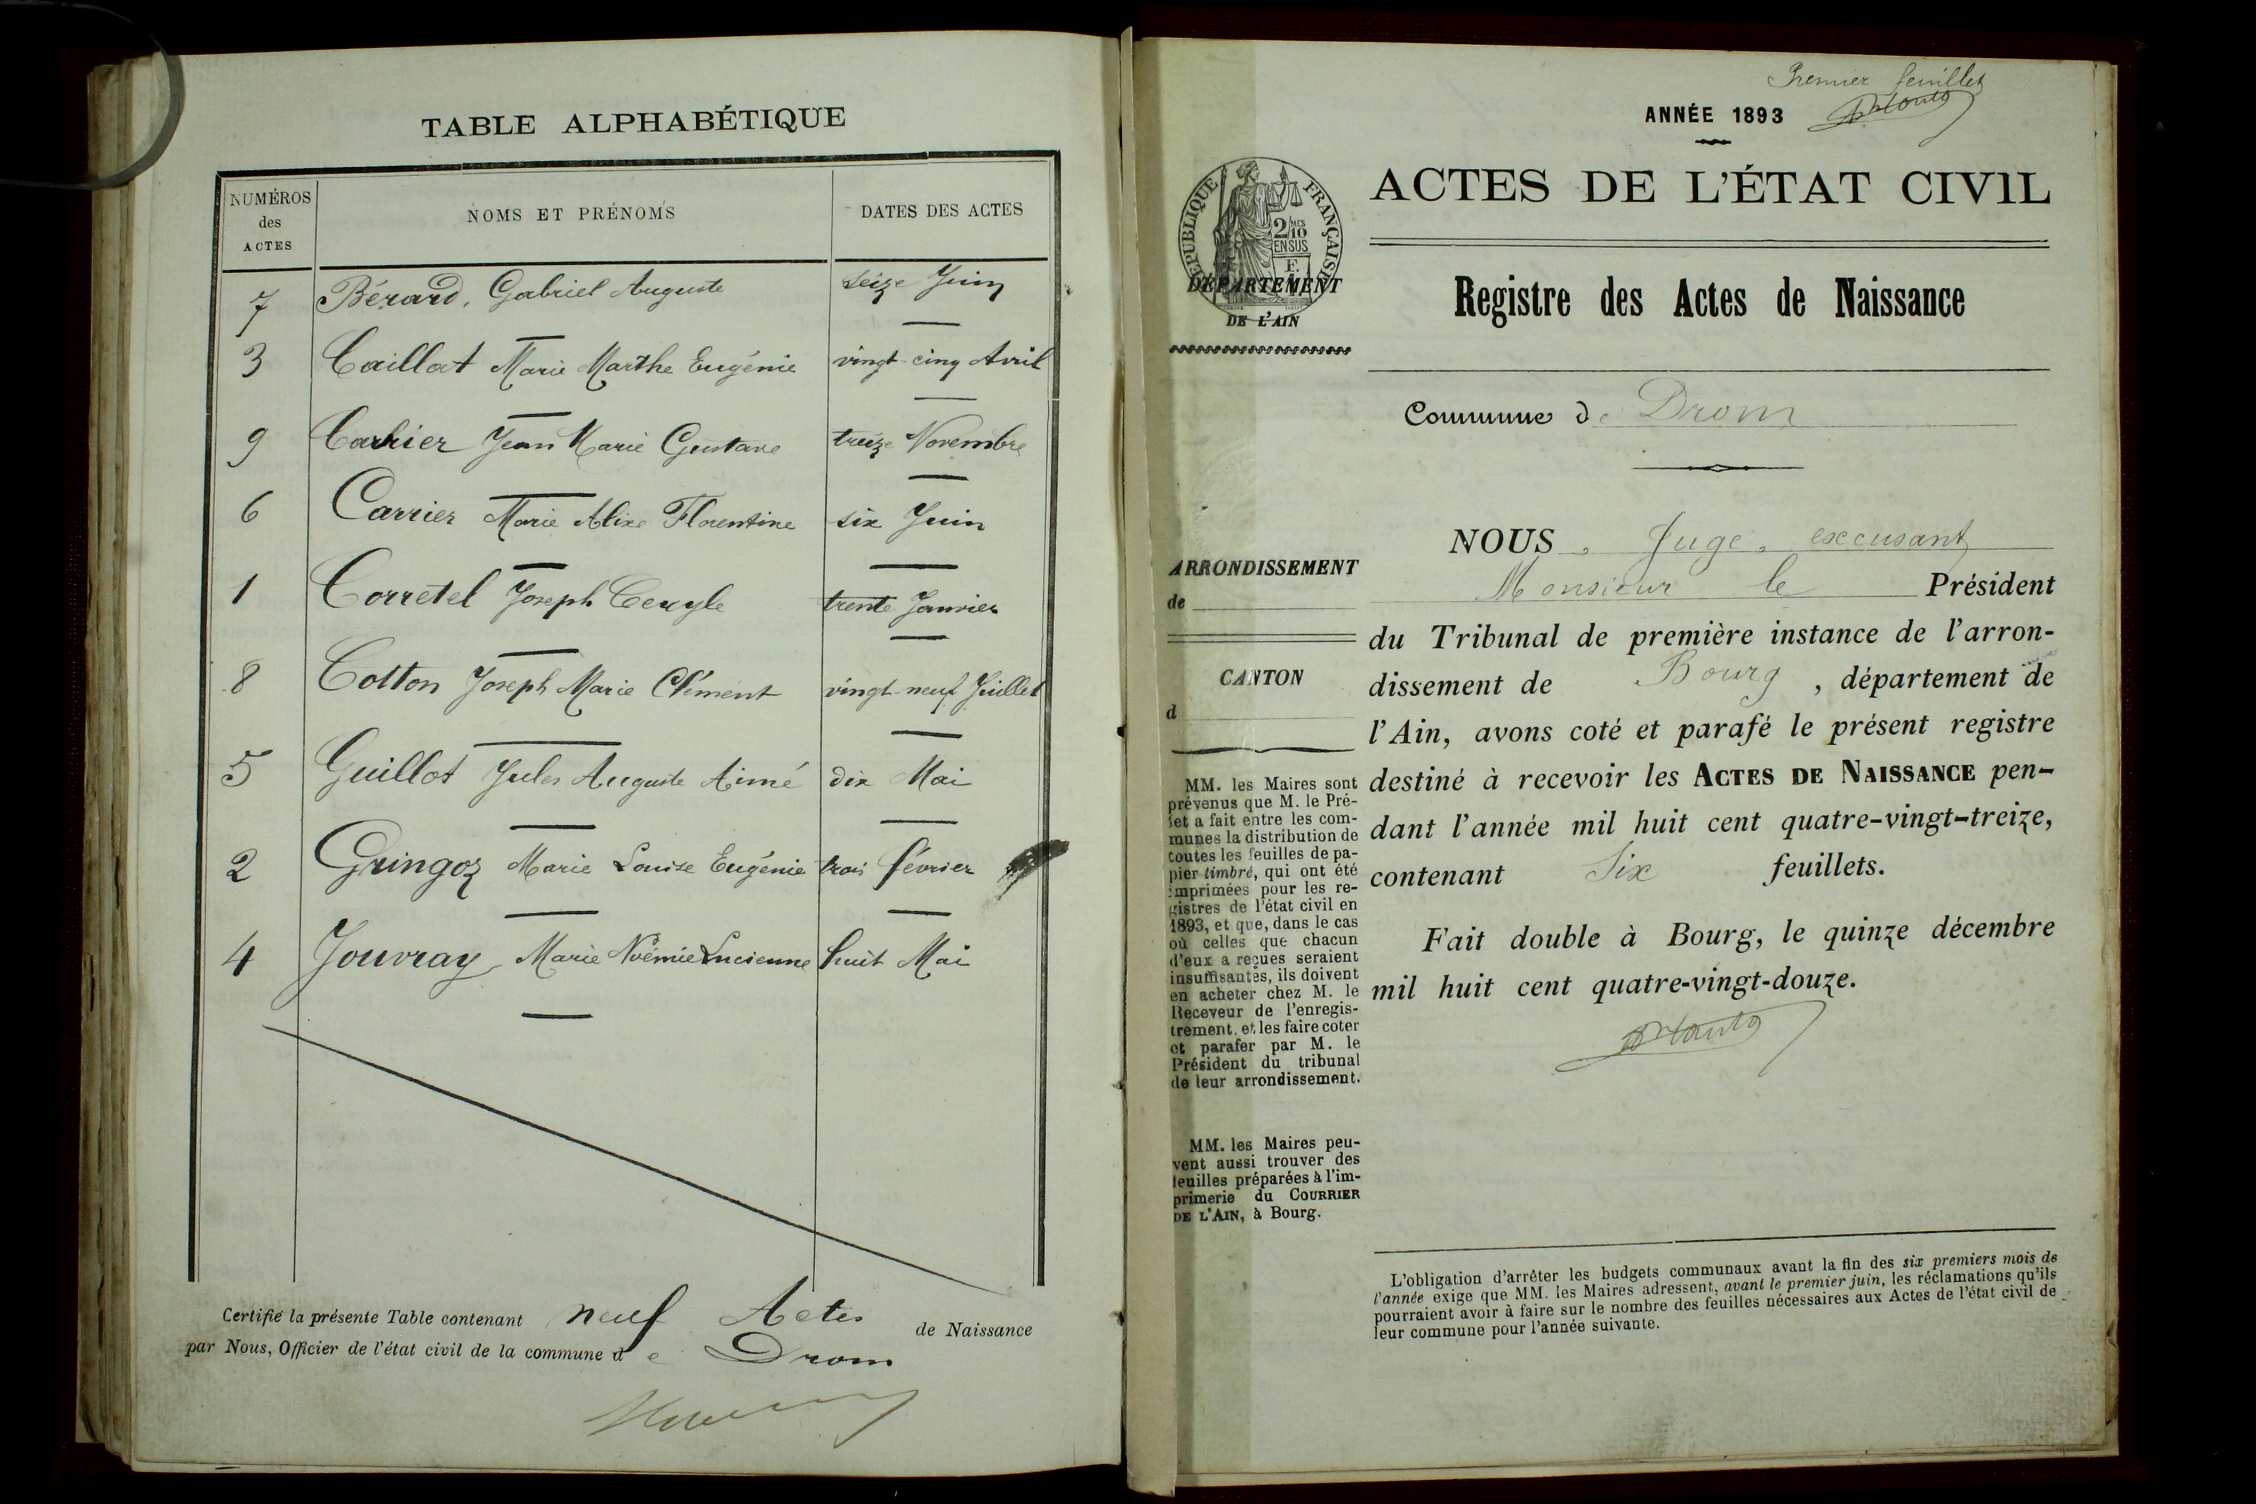 TABLE ALPHABÉTIQUE
NUMÉROS des ACTES
NOMS ET PRÉNOMS
DATES DES ACTES
7 Bérard, Gabriel Auguste seize Juin
3 Caillat Marie Marthe Eugénie vingt-cinq Avril
9 Carrier Jean Marie Gustave treize Novembre
6 Carrier Marie Alixe Florentine six Juin
1 Corretel Joseph trente Janvier
8 Cotton Joseph Marie Clément vingt-neuf Juillet
5 Guillot Jules Auguste Aimé dix Mai
2 Gringoz Marie Louise Eugénie trois février
4 Jouvray Marie Noémie Lucienne huit Mai
Certifié la présente Table contenant neuf Actes de Naissance
par Nous, Officier de l'état civil de la commune de Drom
Premier feuillet
ANNÉE 1893
RÉPUBLIQUE FRANÇAISE
2/10
EN SUS
DÉPARTEMENT
DE L'AIN
ACTES DE L'ÉTAT CIVIL
Registre des Actes de Naissance
Commune de Drom
ARRONDISSEMENT
de
CANTON
d
MM. les Maires sont
prévenus que M. le Pré-
fet a fait entre les com-
munes la distribution de
toutes les feuilles de pa-
pier timbré, qui ont été
imprimées pour les re-
gistres de l'état civil en
1893, et que, dans le cas
où celles que chacun
d'eux a reçues seraient
insuffisantes, ils doivent
en acheter chez M. le
Receveur de l'enregis-
trement, et les faire coter
et parafer par M. le
Président du tribunal
de leur arrondissement.
MM. les Maires peu-
vent aussi trouver des
feuilles préparées à l'im-
primerie du COURRIER
DE L'AIN, à Bourg.
NOUS, Juge, excusant
Monsieur le Président
du Tribunal de première instance de l'arron-
dissement de Bourg, département de
l'Ain, avons coté et parafé le présent registre
destiné à recevoir les ACTES DE NAISSANCE pen-
dant l'année mil huit cent quatre-vingt-treize,
contenant Six feuillets.
Fait double à Bourg, le quinze décembre
mil huit cent quatre-vingt-douze.
L'obligation d'arrêter les budgets communaux avant la fin des six premiers mois de
l'année exige que MM. les Maires adressent, avant le premier juin, les réclamations qu'ils
pourraient avoir à faire sur le nombre des feuilles nécessaires aux Actes de l'état civil de
leur commune pour l'année suivante.